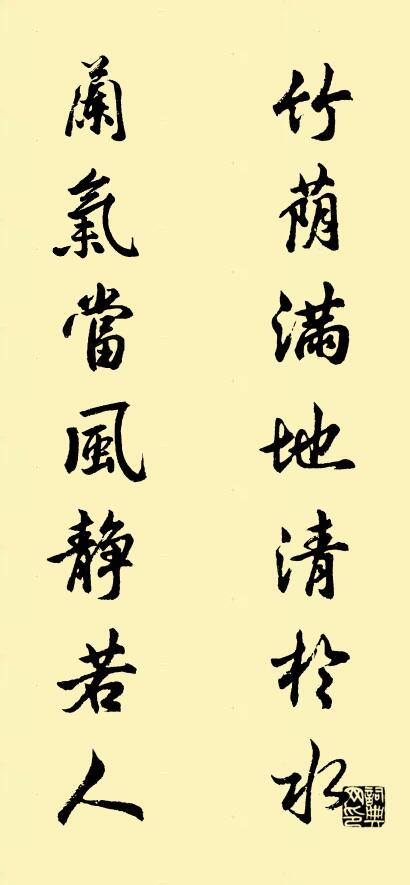 竹荫满地清於水
蘭氣當風静若人
詞典网印